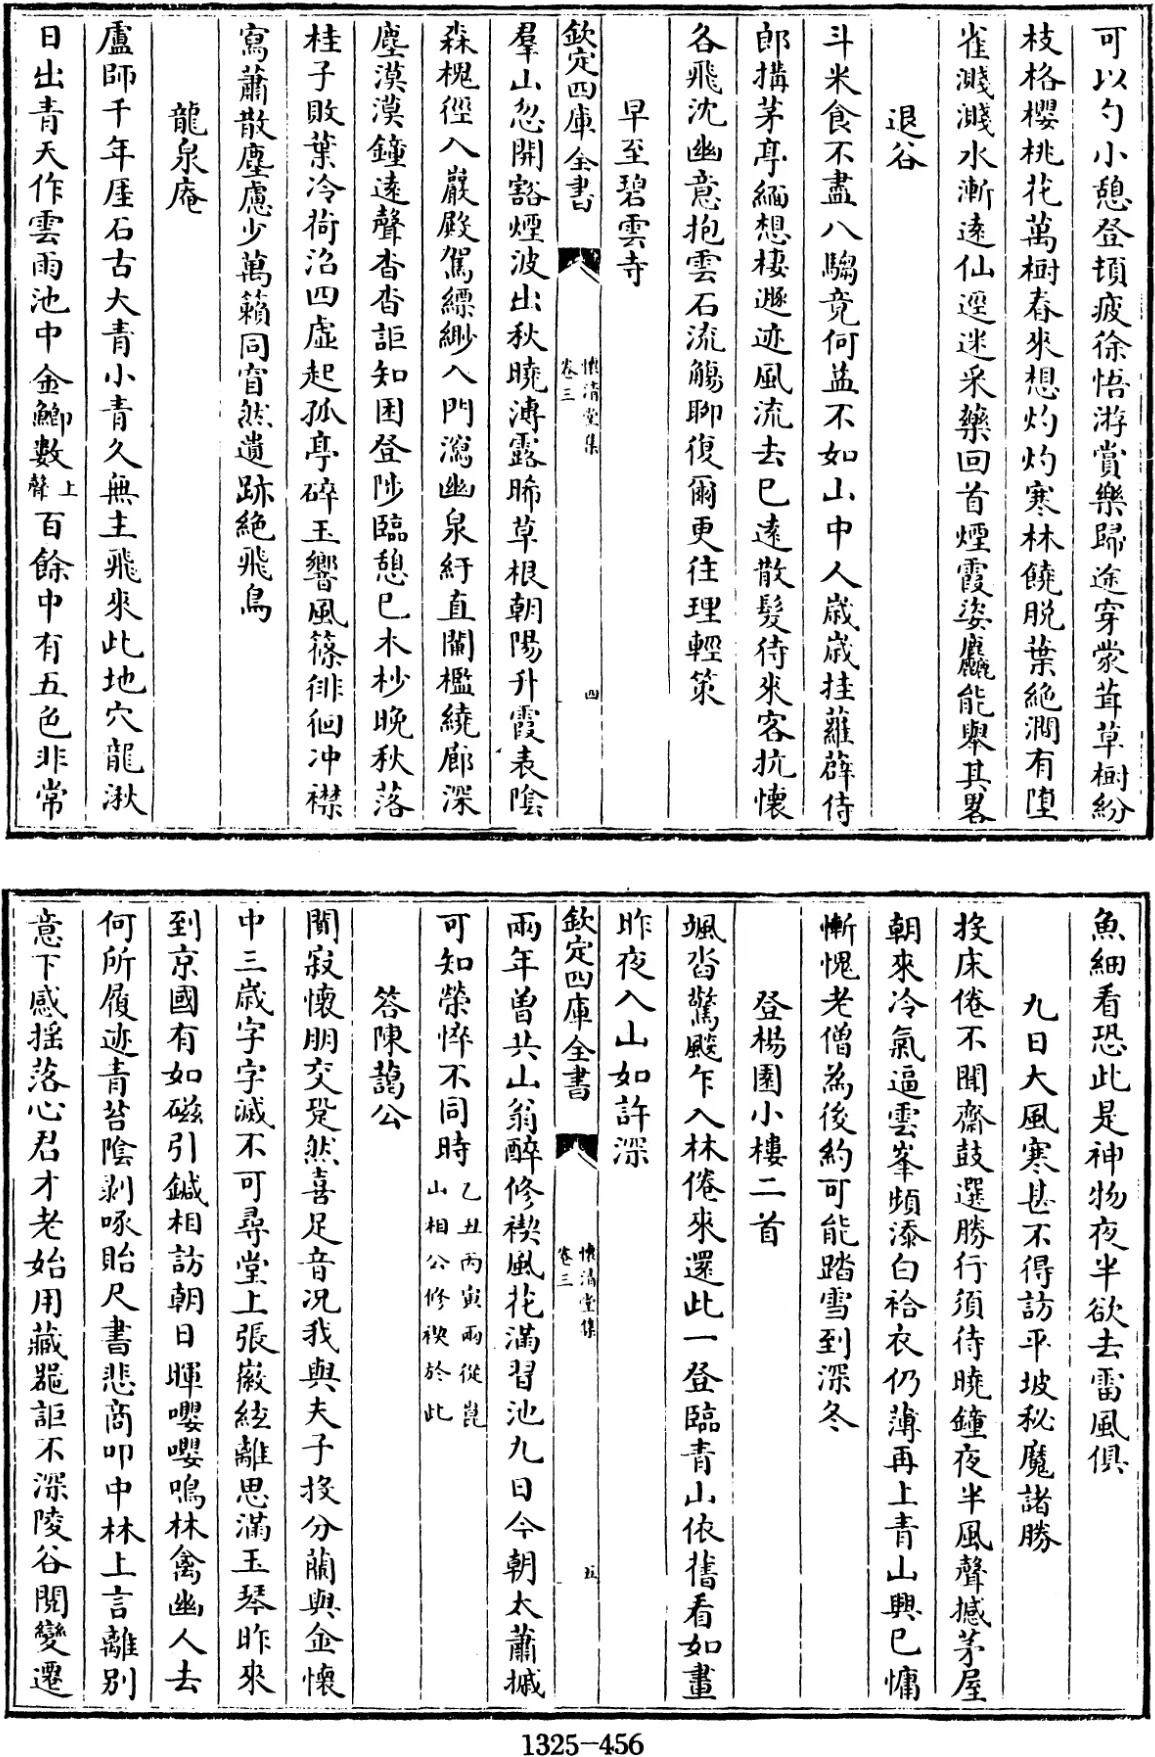 可以勺小憩登頓疲徐悟游賞樂歸途穿蒙茸草樹紛
枝格櫻桃花萬樹春來想灼灼寒林饒脱葉絶澗有墮
雀濺濺水漸遠仙逕迷采藥回首煙霞姿麤能舉其畧
退谷
斗米食不盡八騶竟何益不如山中人歳歳挂蘿薜侍
郎搆茅亭緬想棲遯迹風流去已遠散髮待來客抗懷
各飛沈幽意抱雲石流觴聊復爾更往理輕策
早至碧雲寺
欽定四庫全書
懷清堂集
卷三
四
羣山忽開豁煙波出秋曉漙露晞草根朝陽升霞表陰
森槐徑入巖殿駕縹緲入門瀉幽泉紆直闌檻繞廊深
塵漠漠鐘遠聲杳杳詎知困登陟臨憩已木杪晩秋落
桂子敗葉冷荷沼四虛起孤亭碎玉響風篠徘徊冲襟
寫蕭散塵慮少萬籟同窅然遺跡絶飛鳥
龍泉庵
盧師千年厓石古大青小青久無主飛來此地穴龍湫
日出青天作雲雨池中金鯽數上聲百餘中有五色非常
魚細看恐此是神物夜半欲去雷風俱
九日大風寒甚不得訪平坡秘魔諸勝
投床倦不聞齋鼓選勝行須待曉鐘夜半風聲撼茅屋
朝來冷氣逼雲峯頻添白袷衣仍薄再上青山興已慵
慚愧老僧為後約可能踏雪到深冬
登楊園小樓二首
颯沓驚飈乍入林倦來還此一登臨青山依舊看如畫
昨夜入山如許深
欽定四庫全書
懷清堂集
卷三
五
兩年曽共山翁醉修禊風花滿習池九日今朝太蕭摵
可知榮悴不同時乙丑丙寅兩從崑山相公修禊於此
答陳藹公
閒寂懷朋交跫然喜足音况我與夫子投分蘭與金懷
中三歳字字滅不可尋堂上張嶽絃離思滿玉琴昨來
到京國有如磁引鍼相訪朝日暉嚶嚶鳴林禽幽人去
何所履迹青苔陰剥啄貽尺書悲商叩中林上言離别
意下感揺落心君才老始用藏器詎不深陵谷閲變遷
1325-456